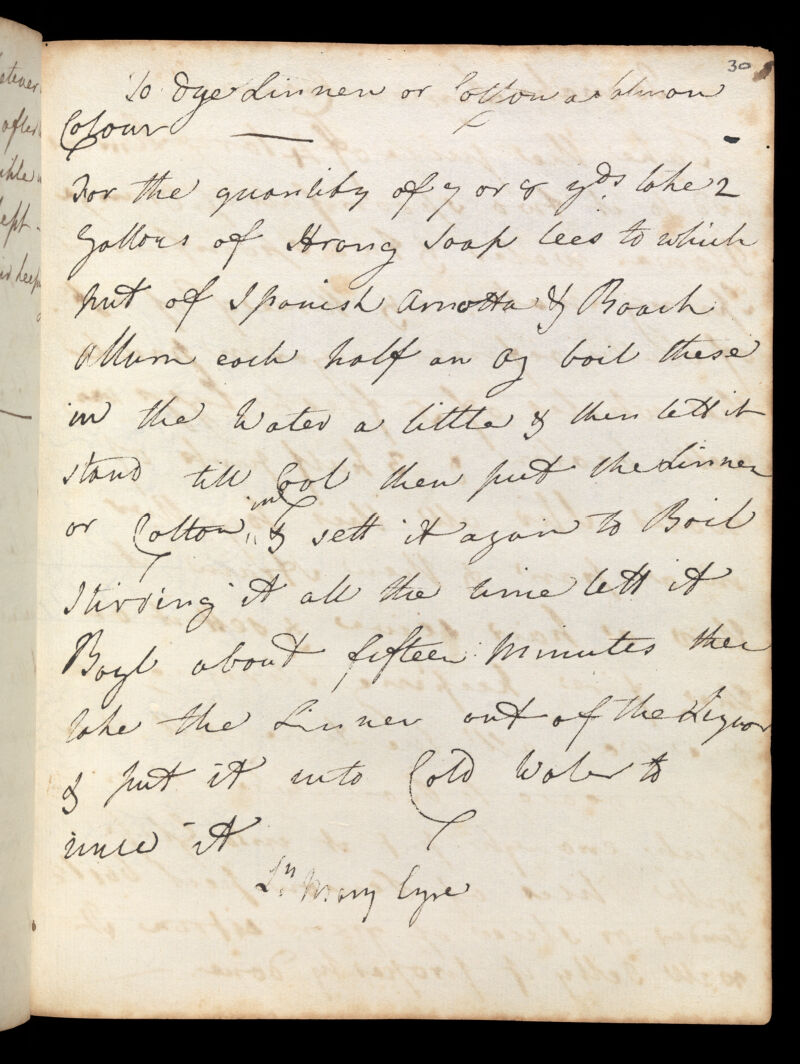 30
To Dye Linnen or Cotton a Salmon
Colour
For the quantity of 7 or 8 yds take 2
Gallons of Strong Soap lees to which
put of Spanish Arnotta & Roach
Allum each half an oz boil these
in the Water a little & then lett it
stand till Cool then put the Linnen
or Cotton in & sett it again to Boil
Stirring it all the time lett it
Boyl about fifteen Minutes then
take the Linnen out of the Liquor
& put it into Cold Water to
rince it
Mary Eyre